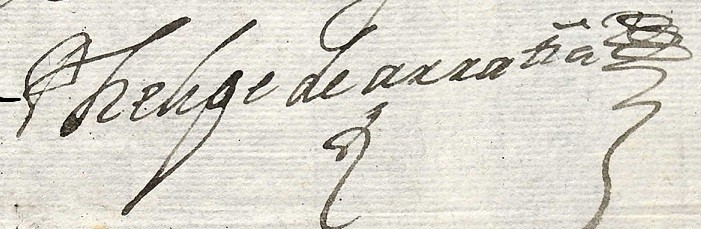 Phelipe de arratia